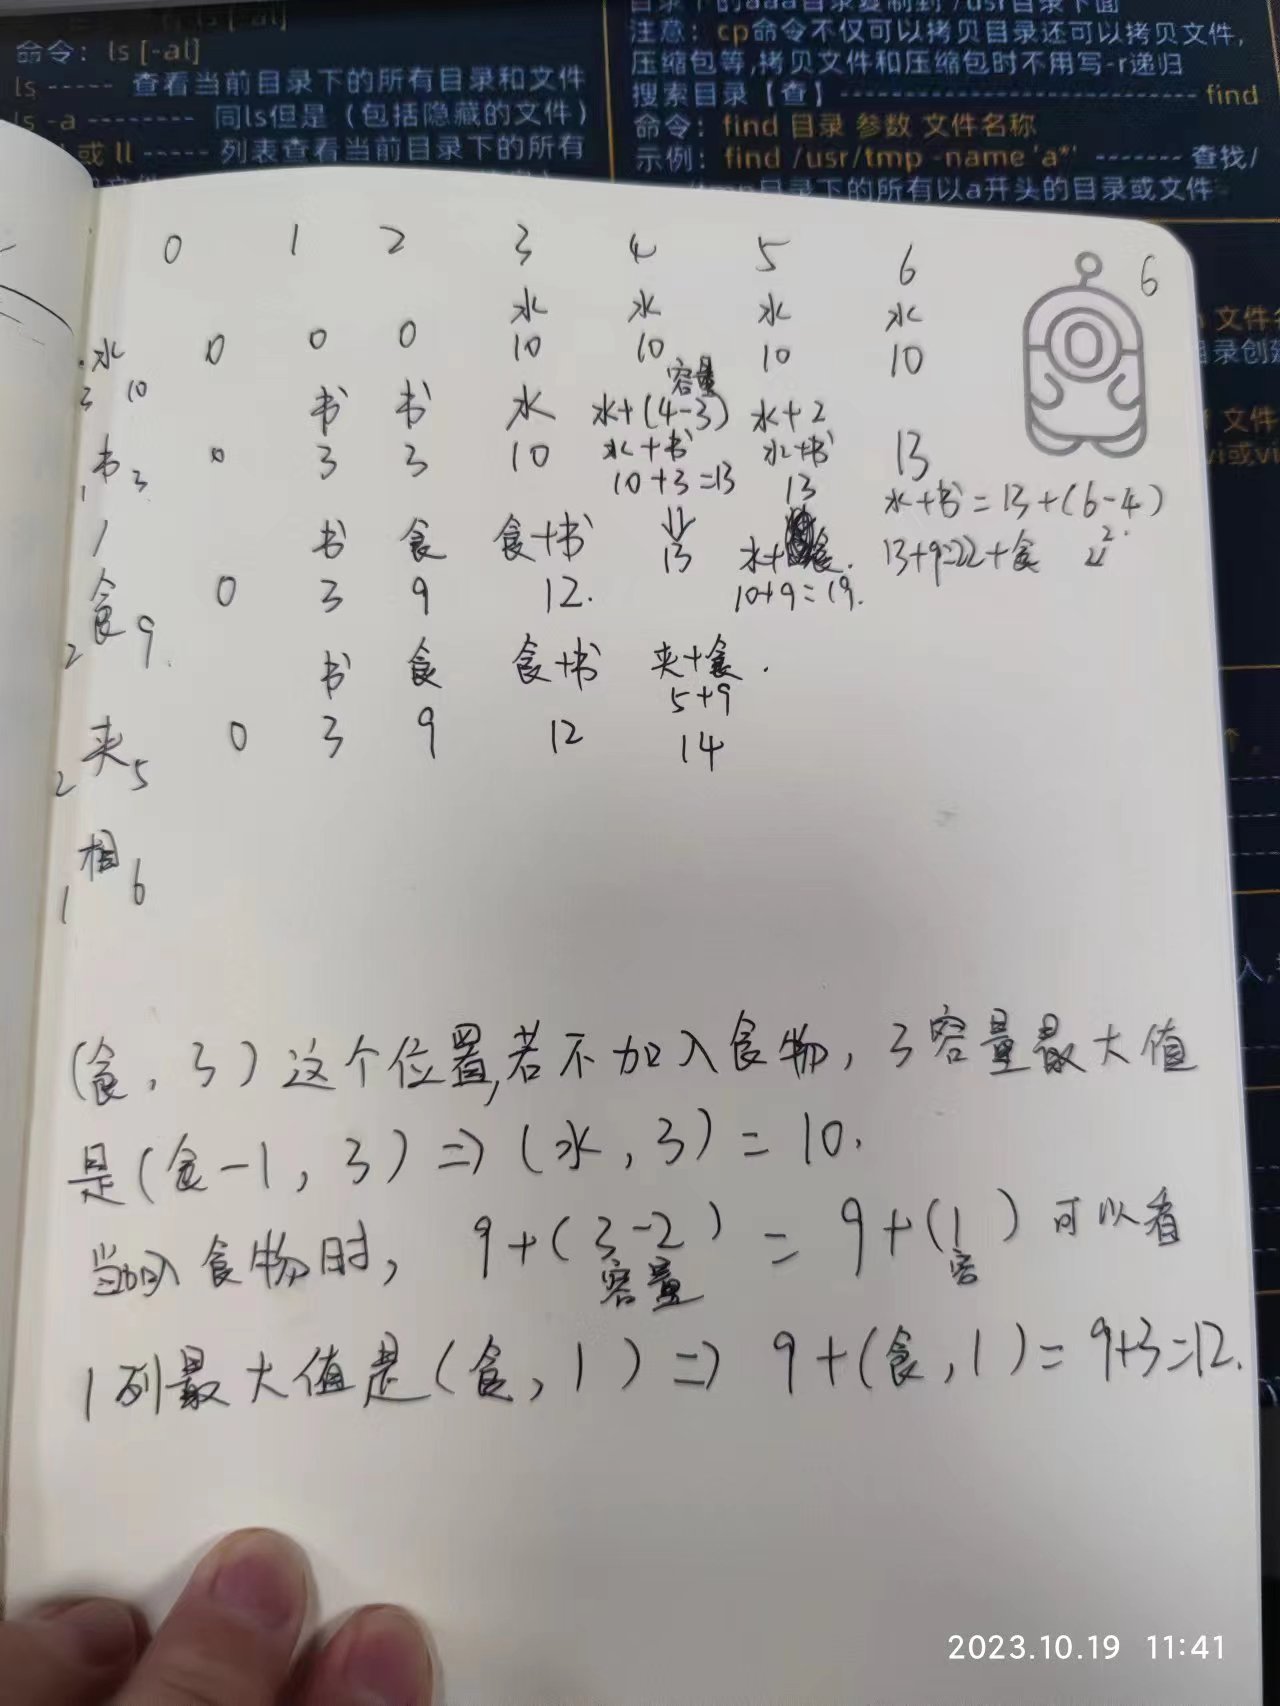 命令：ls [-al]
ls ----- 查看当前目录下的所有目录和文件
ls -a -------- 同ls但是（包括隐藏的文件）
或 ll ----- 列表查看当前目录下的所有
目录下的aaa目录复制到 /usr目录下面
注意：cp命令不仅可以拷贝目录还可以拷贝文件，
压缩包等，拷贝文件和压缩包时不用写-r递归
搜索目录【查】 ------------------------------ find
命令：find 目录 参数 文件名称
示例：find /usr/tmp -name 'a*' ------- 查找/
目录下的所有以a开头的目录或文件
0 1 2 3 4 5 6
6
水 水 水 水
水 0 0 0 10 10 10 10
3 10
容量
书 书 水 水+(4-3) 水+2
书 0 3 3 10 水+书 水+书 13
1 3
10+3=13 13 水+书=13+(6-4)
书 食 食+书 ⇓ 水+食. 13+9=22+食 2
食 0 3 9 12. 13 10+9=19.
2 9.
书 食 食+书 夹+食.
5+9
夹 0 3 9 12 14
2 5
相
1 6
(食，3)这个位置，若不加入食物，3容量最大值
是(食-1，3)⇒(水，3)=10.
当加入食物时，9+(3-2)=9+(1)可以看
容量 容
1列最大值是(食，1)⇒9+(食，1)=9+3=12.
文件
目录创建
文件
vi或vi
入，
2023.10.19 11:41